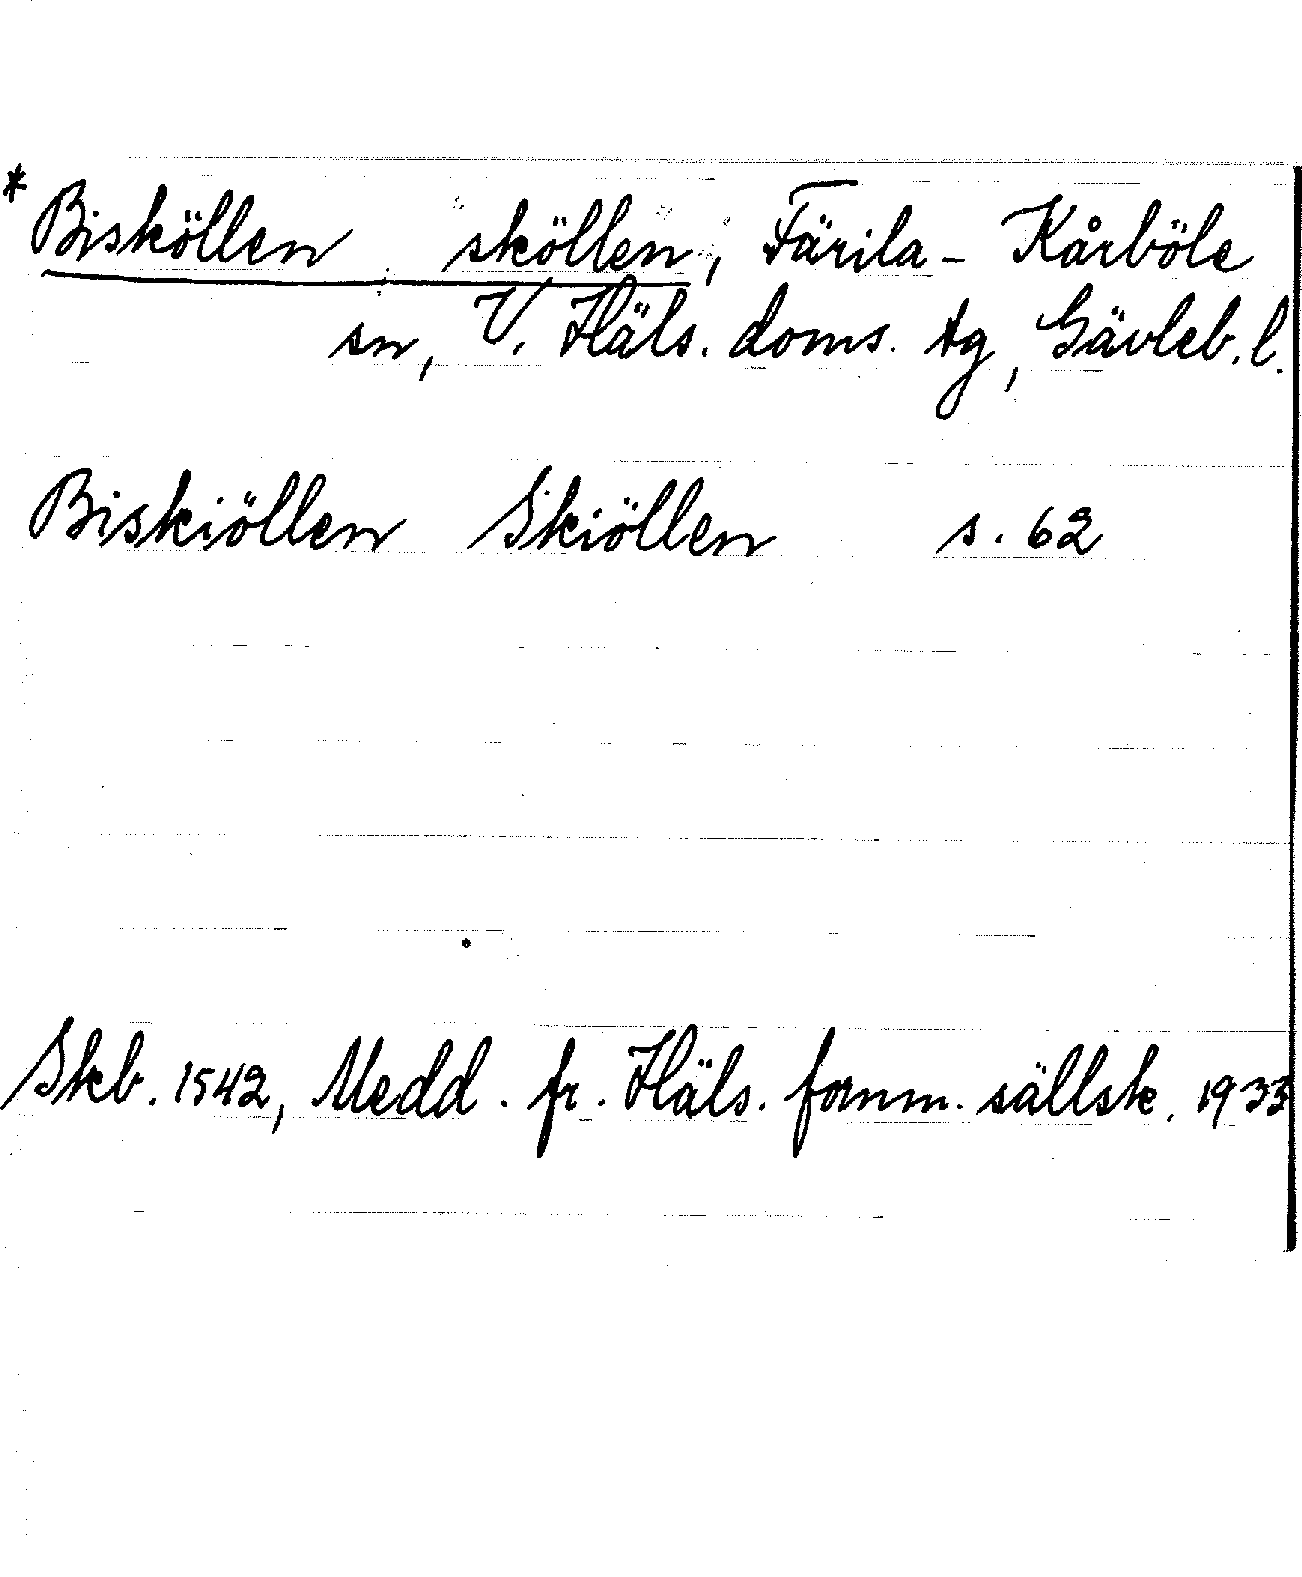 * Bisköllen sköllen, Färila - Kårböle
sn, V. Häls. doms. tg, Gävleb. l.
Biskiöllen Skiöllen s. 62
Skb. 1542, Medd. fr. Häls. fornm. sällsk. 1933